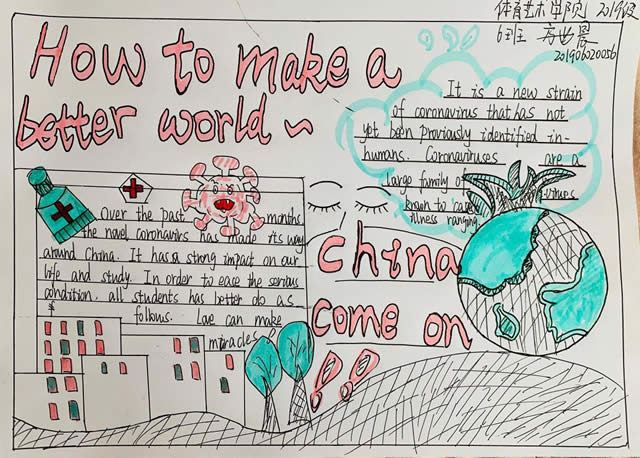 体育艺术学院 2019级
6班
201906020056
How to make a
better world ~
It is a new strain
of coronavirus that has not
yet been previously identified in
humans. Coronaviuses are a
large family of virus
known to cause
illness ranging
Over the past months
the novel coronavirs has made its way
around China. It has a strong impact on our
life and study. In order to ease the serious
condition. all students has better do as
follows. Lae can make
miracles
China
come on
!!